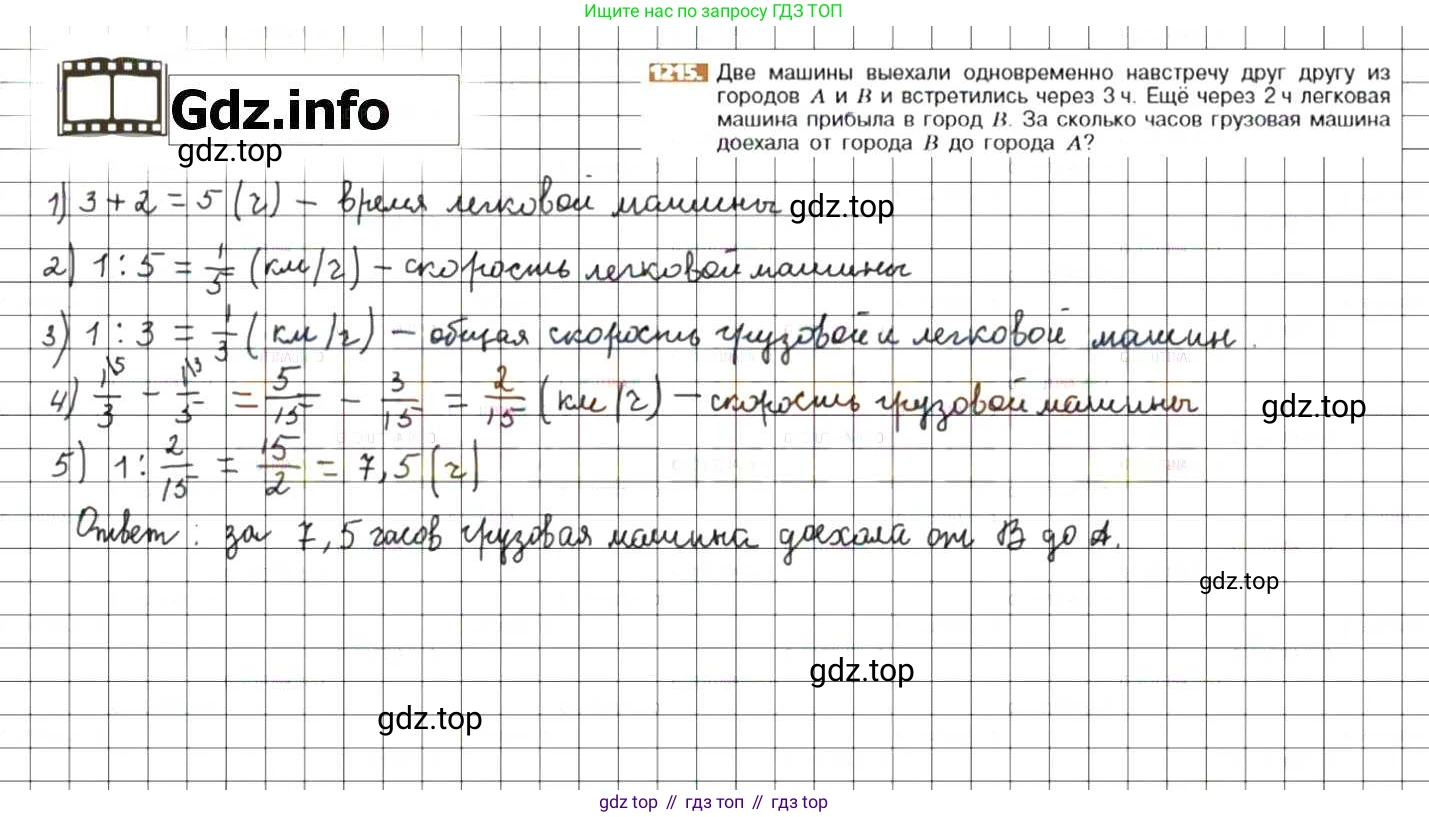 Ищите нас по запросу ГДЗ ТОП
Gdz.info
gdz.top
1215. Две машины выехали одновременно навстречу друг другу из
городов A и B и встретились через 3 ч. Ещё через 2 ч легковая
машина прибыла в город B. За сколько часов грузовая машина
доехала от города B до города A?
1) 3 + 2 = 5 (ч) – время легковой машины
gdz.top
2) 1 : 5 = 1/5 (км/ч) – скорость легковой машины
3) 1 : 3 = 1/3 (км/ч) – общая скорость грузовой и легковой машин.
4) 1/3 \5 – 1/5 \3 = 5/15 – 3/15 = 2/15 (км/ч) – скорость грузовой машины
gdz.top
5) 1 : 2/15 = 15/2 = 7,5 (ч)
Ответ: за 7,5 часов грузовая машина доехала от B до A.
gdz.top
gdz.top
gdz.top
gdz top // гдз топ // гдз top